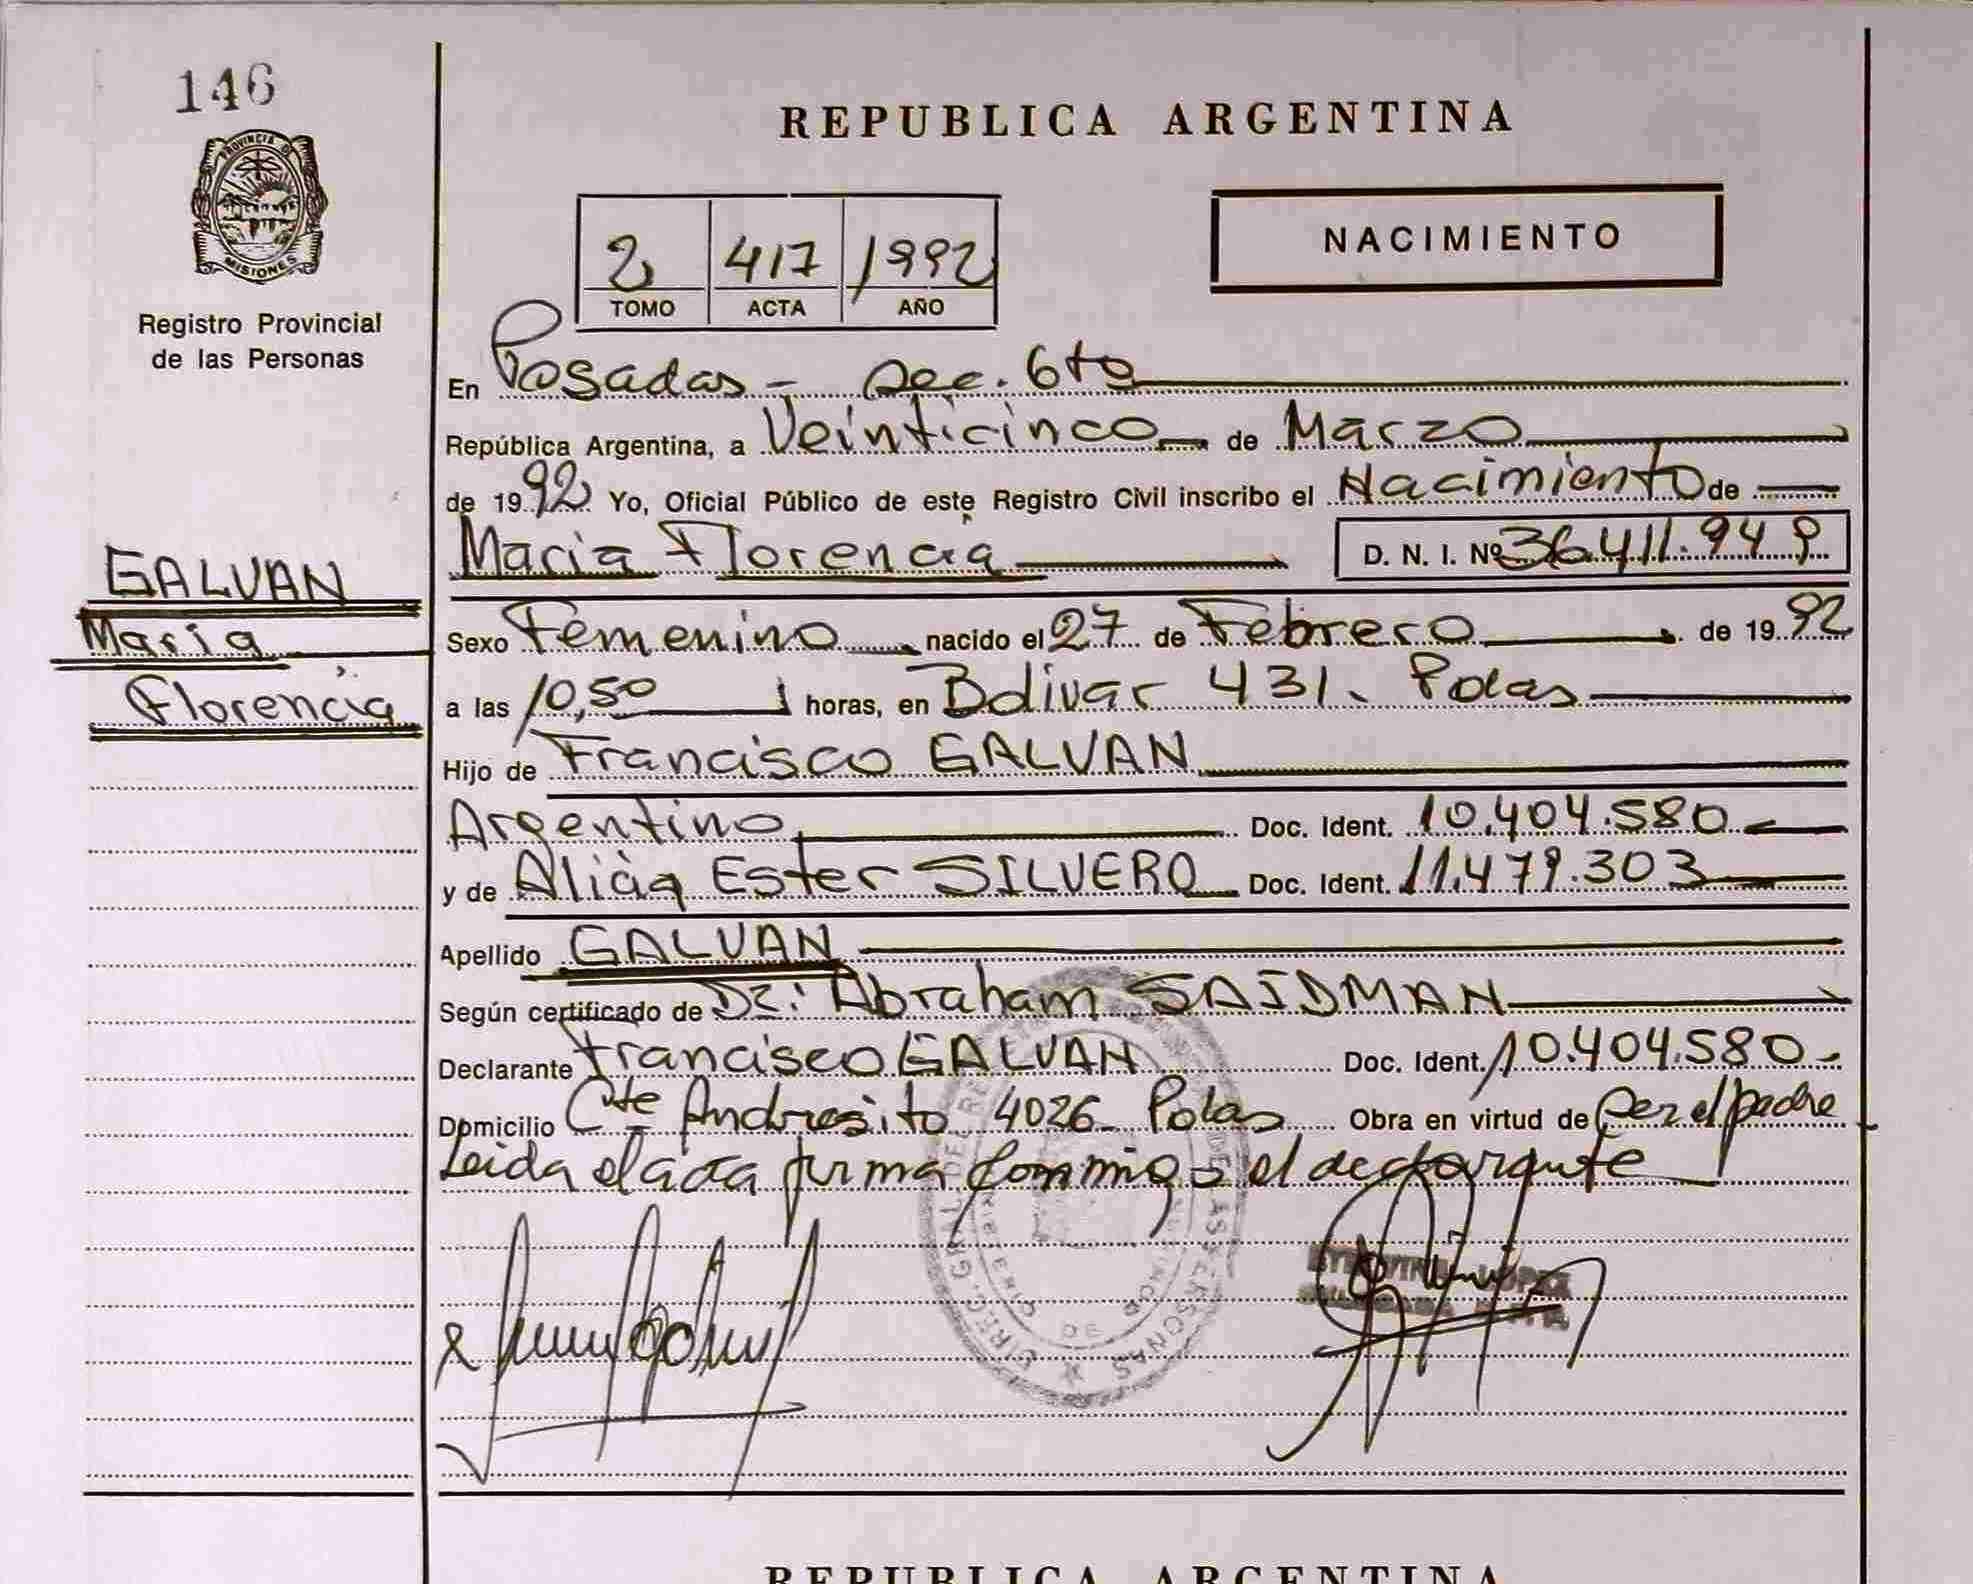 146
PROVINCIA DE
MISIONES
Registro Provincial
de las Personas
GALVAN
Maria
Florencia
REPUBLICA ARGENTINA
2 417 1992
TOMO ACTA AÑO
NACIMIENTO
En Posadas - Sec. 6ta
República Argentina, a Veinticinco de Marzo
de 1992 Yo, Oficial Público de este Registro Civil inscribo el Nacimiento de
Maria Florencia D. N. I. Nº 36.411.949
Sexo Femenino nacido el 27 de Febrero de 1992
a las 10,50 horas, en Bolivar 431. Pdas
Hijo de Francisco GALVAN
Argentino Doc. Ident. 10.404.580
y de Alicia Ester SILVERO Doc. Ident. 11.479.303
Apellido GALVAN
Según certificado de Dr. Abraham SAIDMAN
Declarante Francisco GALVAN Doc. Ident. 10.404.580.-
Domicilio Cte Andresito 4026 - Pdas Obra en virtud de ser el padre
Leida el acta firma conmigo el declarante
REPUBLICA ARGENTINA